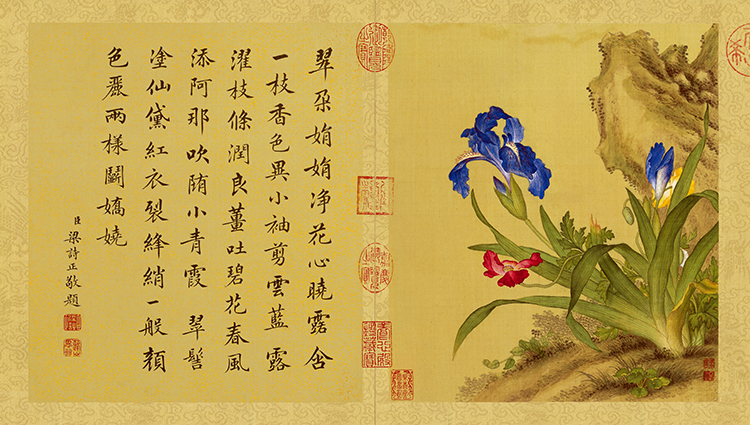 翠朶娟娟净花心曉露含
一枝香色異小袖剪雲藍露
濯枝條潤良薑吐碧花春風
添阿那吹隨小青霞 翠髻
塗仙黛紅衣裂絳綃一般顏
色嚴兩樣鬬嬌嬈
臣梁詩正敬題